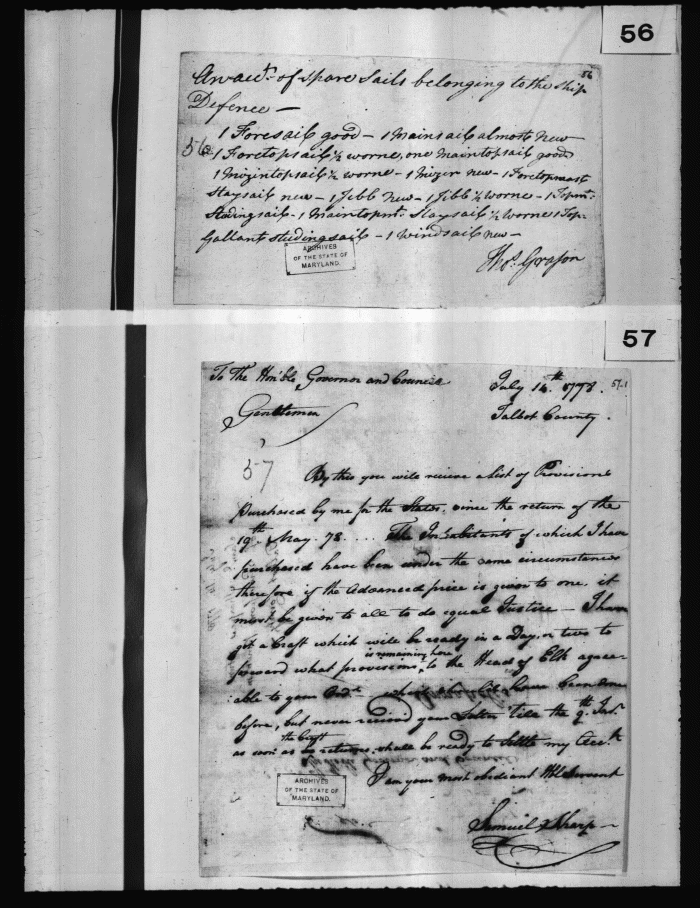 56
56
An acct. of spare Sails belonging to the Ship
Defence —
56
1 Foresail good — 1 Mainsail almost New
1 Foretopsail ½ worne, one Maintopsail good
1 Mizintopsail ½ worne — 1 Mizen new — 1 Foretopmast
Staysail new — 1 Jibb New — 1 Jibb ½ worne — 1 Topmt.
Studingsail — 1 Maintopmt. Staysail ½ worne 1 Top
Gallant Studingsail — 1 Windsail new —
Thos. Grason
ARCHIVES
OF THE STATE OF
MARYLAND.
57
To The Honble Governor and Council
July 14th 1778.
57-1
Talbot County.
Gentlemen
57
By this you will recieve a list of Provisions
purchased by me for the States, since the return of the
19th May 78 .... The Inhabitants of which I have
purchased have been under the same circumstances
therefore if the advanced price is given to one it
must be given to all to do equal Justice — I have
got a Craft which will be ready in a Day or two to
is remaining here
forward what provisions, to the Head of Elk agree-
able to your Ordr. which should have been done
before, but never recievd your Letter till the 9th Inst.
the Craft
as soon as returns, shall be ready to settle my Acct.
I am your most obedient Hbl Servant
ARCHIVES
OF THE STATE OF
MARYLAND.
Samuel Sharp